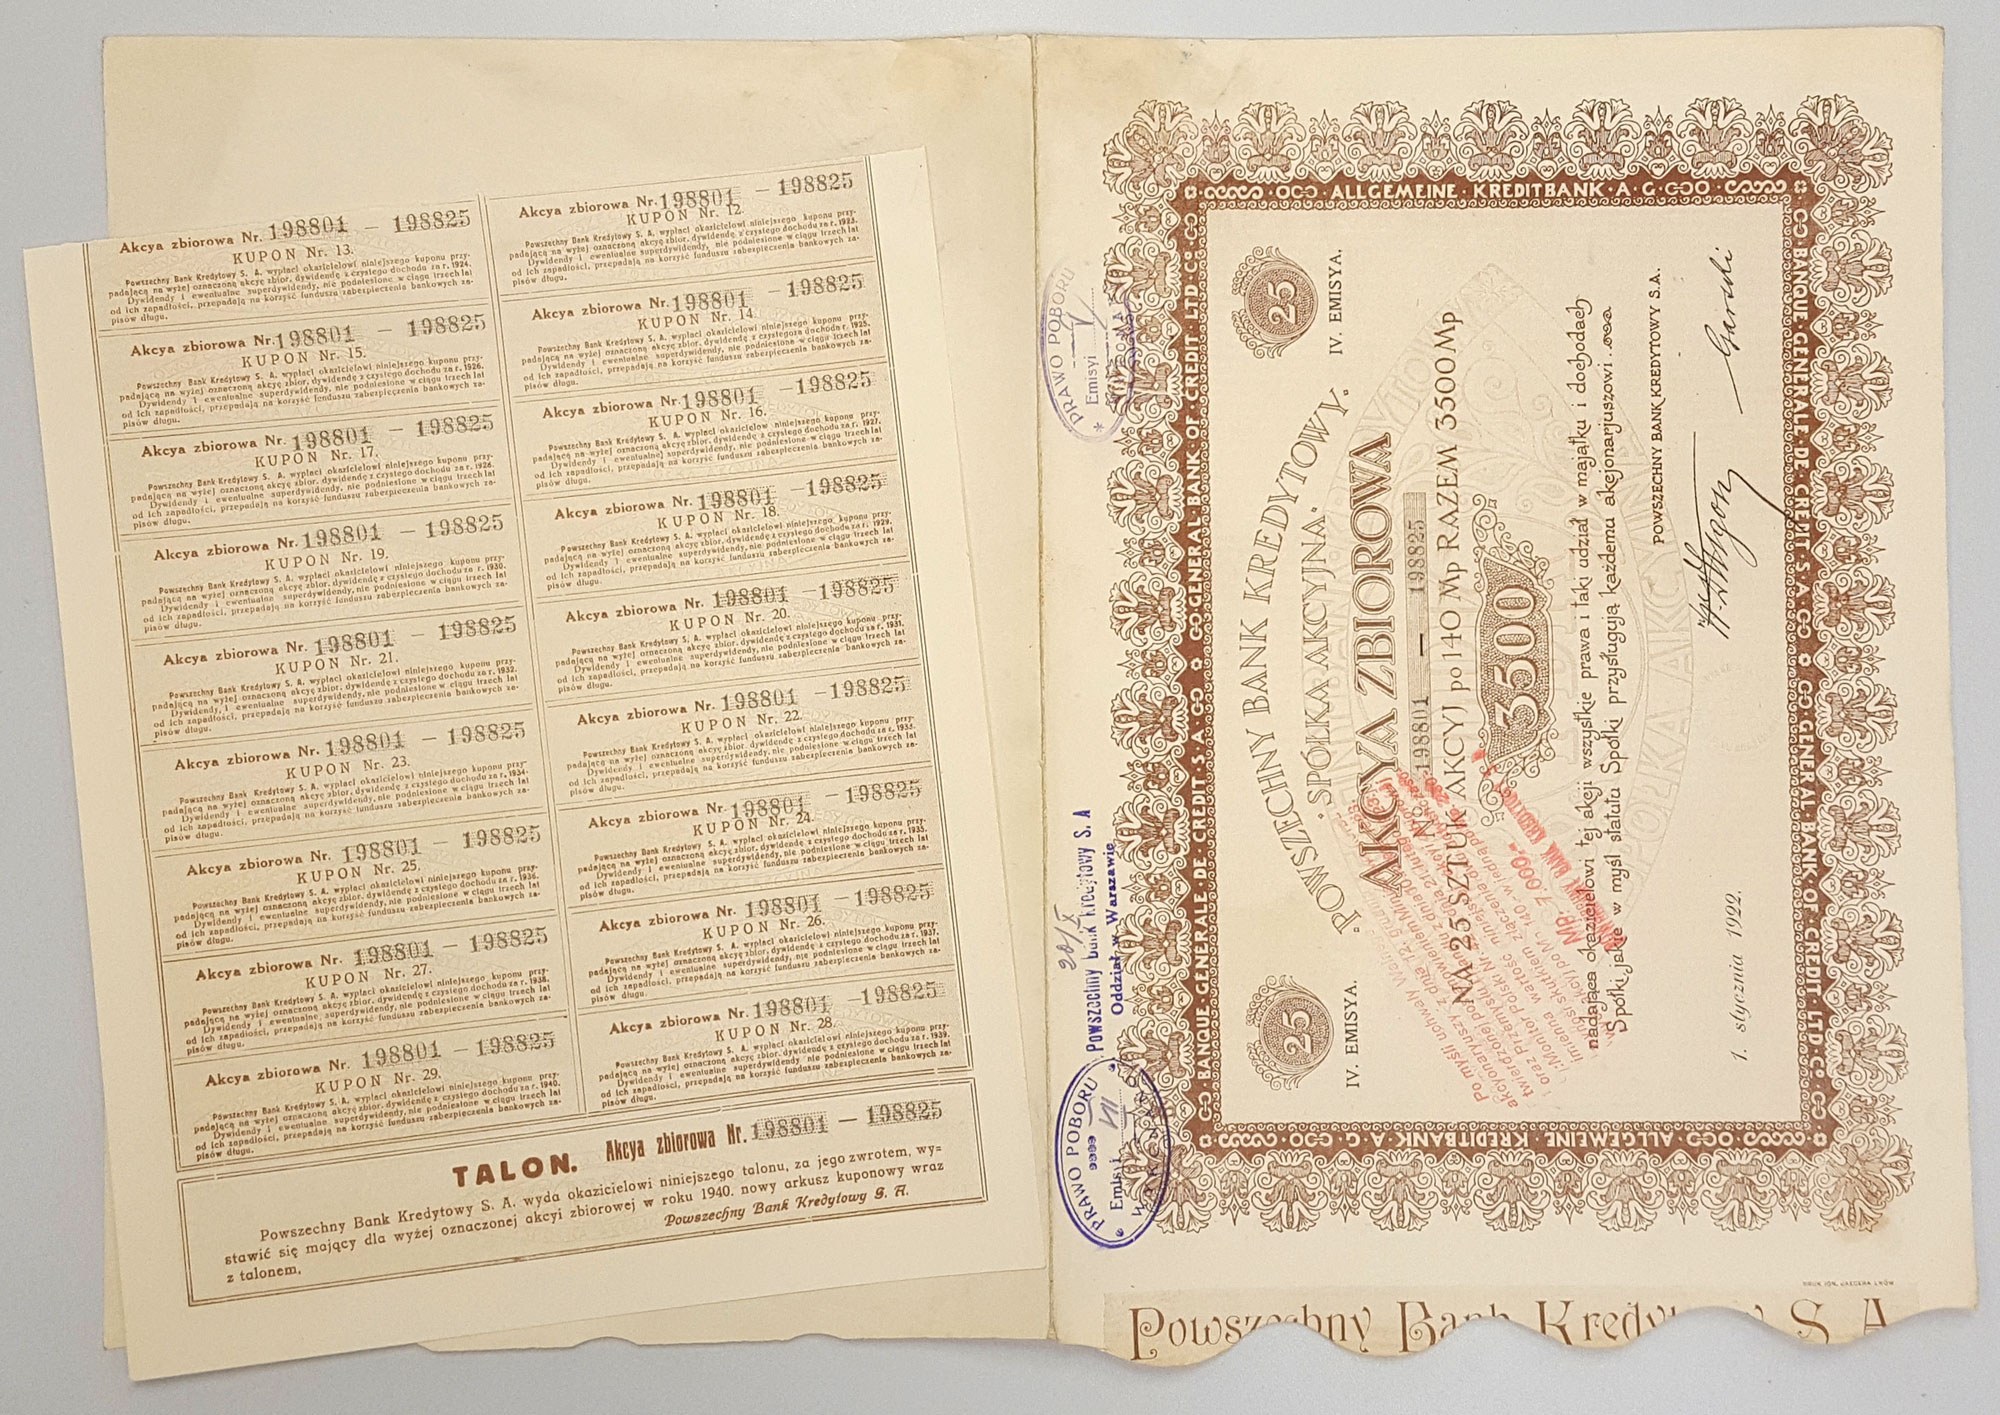 Akcya zbiorowa Nr. 198801 – 198825
KUPON Nr. 13.
Powszechny Bank Kredytowy S. A. wypłaci okazicielowi niniejszego kuponu przy-
padającą na wyżej oznaczoną akcyę zbior. dywidendę z czystego dochodu za r. 1924.
Dywidendy i ewentualne superdywidendy, nie podniesione w ciągu trzech lat
od ich zapadłości, przepadają na korzyść funduszu zabezpieczenia bankowych za-
pisów długu.
Akcya zbiorowa Nr. 198801 – 198825
KUPON Nr. 12.
Powszechny Bank Kredytowy S. A. wypłaci okazicielowi niniejszego kuponu przy-
padającą na wyżej oznaczoną akcyę zbior. dywidendę z czystego dochodu za r. 1923.
Dywidendy i ewentualne superdywidendy, nie podniesione w ciągu trzech lat
od ich zapadłości, przepadają na korzyść funduszu zabezpieczenia bankowych za-
pisów długu.
Akcya zbiorowa Nr. 198801 – 198825
KUPON Nr. 15.
Powszechny Bank Kredytowy S. A. wypłaci okazicielowi niniejszego kuponu przy-
padającą na wyżej oznaczoną akcyę zbior. dywidendę z czystego dochodu za r. 1926.
Dywidendy i ewentualne superdywidendy, nie podniesione w ciągu trzech lat
od ich zapadłości, przepadają na korzyść funduszu zabezpieczenia bankowych za-
pisów długu.
Akcya zbiorowa Nr. 198801 – 198825
KUPON Nr. 14.
Powszechny Bank Kredytowy S. A. wypłaci okazicielowi niniejszego kuponu przy-
padającą na wyżej oznaczoną akcyę zbior. dywidendę z czystego dochodu za r. 1925.
Dywidendy i ewentualne superdywidendy, nie podniesione w ciągu trzech lat
od ich zapadłości, przepadają na korzyść funduszu zabezpieczenia bankowych za-
pisów długu.
Akcya zbiorowa Nr. 198801 – 198825
KUPON Nr. 17.
Powszechny Bank Kredytowy S. A. wypłaci okazicielowi niniejszego kuponu przy-
padającą na wyżej oznaczoną akcyę zbior. dywidendę z czystego dochodu za r. 1928.
Dywidendy i ewentualne superdywidendy, nie podniesione w ciągu trzech lat
od ich zapadłości, przepadają na korzyść funduszu zabezpieczenia bankowych za-
pisów długu.
Akcya zbiorowa Nr. 198801 – 198825
KUPON Nr. 16.
Powszechny Bank Kredytowy S. A. wypłaci okazicielowi niniejszego kuponu przy-
padającą na wyżej oznaczoną akcyę zbior. dywidendę z czystego dochodu za r. 1927.
Dywidendy i ewentualne superdywidendy, nie podniesione w ciągu trzech lat
od ich zapadłości, przepadają na korzyść funduszu zabezpieczenia bankowych za-
pisów długu.
Akcya zbiorowa Nr. 198801 – 198825
KUPON Nr. 19.
Powszechny Bank Kredytowy S. A. wypłaci okazicielowi niniejszego kuponu przy-
padającą na wyżej oznaczoną akcyę zbior. dywidendę z czystego dochodu za r. 1930.
Dywidendy i ewentualne superdywidendy, nie podniesione w ciągu trzech lat
od ich zapadłości, przepadają na korzyść funduszu zabezpieczenia bankowych za-
pisów długu.
Akcya zbiorowa Nr. 198801 – 198825
KUPON Nr. 18.
Powszechny Bank Kredytowy S. A. wypłaci okazicielowi niniejszego kuponu przy-
padającą na wyżej oznaczoną akcyę zbior. dywidendę z czystego dochodu za r. 1929.
Dywidendy i ewentualne superdywidendy, nie podniesione w ciągu trzech lat
od ich zapadłości, przepadają na korzyść funduszu zabezpieczenia bankowych za-
pisów długu.
Akcya zbiorowa Nr. 198801 – 198825
KUPON Nr. 21.
Powszechny Bank Kredytowy S. A. wypłaci okazicielowi niniejszego kuponu przy-
padającą na wyżej oznaczoną akcyę zbior. dywidendę z czystego dochodu za r. 1932.
Dywidendy, i ewentualne superdywidendy, nie podniesione w ciągu trzech lat
od ich zapadłości, przepadają na korzyść funduszu zabezpieczenia bankowych za-
pisów długu.
Akcya zbiorowa Nr. 198801 – 198825
KUPON Nr. 20.
Powszechny Bank Kredytowy S. A. wypłaci okazicielowi niniejszego kuponu przy-
padającą na wyżej oznaczoną akcyę zbior. dywidendę z czystego dochodu za r. 1931.
Dywidendy i ewentualne superdywidendy, nie podniesione w ciągu trzech lat
od ich zapadłości, przepadają na korzyść funduszu zabezpieczenia bankowych za-
pisów długu.
Akcya zbiorowa Nr. 198801 – 198825
KUPON Nr. 23.
Powszechny Bank Kredytowy S. A. wypłaci okazicielowi niniejszego kuponu przy-
padającą na wyżej oznaczoną akcyę zbior. dywidendę z czystego dochodu za r. 1934.
Dywidendy i ewentualne superdywidendy, nie podniesione w ciągu trzech lat
od ich zapadłości, przepadają na korzyść funduszu zabezpieczenia bankowych za-
pisów długu.
Akcya zbiorowa Nr. 198801 – 198825
KUPON Nr. 22.
Powszechny Bank Kredytowy S. A. wypłaci okazicielowi niniejszego kuponu przy-
padającą na wyżej oznaczoną akcyę zbior. dywidendę z czystego dochodu za r. 1933.
Dywidendy i ewentualne superdywidendy, nie podniesione w ciągu trzech lat
od ich zapadłości, przepadają na korzyść funduszu zabezpieczenia bankowych za-
pisów długu.
Akcya zbiorowa Nr. 198801 – 198825
KUPON Nr. 25.
Powszechny Bank Kredytowy S. A. wypłaci okazicielowi niniejszego kuponu przy-
padającą na wyżej oznaczoną akcyę zbior. dywidendę z czystego dochodu za r. 1936.
Dywidendy i ewentualne superdywidendy, nie podniesione w ciągu trzech lat
od ich zapadłości, przepadają na korzyść funduszu zabezpieczenia bankowych za-
pisów długu.
Akcya zbiorowa Nr. 198801 – 198825
KUPON Nr. 24.
Powszechny Bank Kredytowy S. A. wypłaci okazicielowi niniejszego kuponu przy-
padającą na wyżej oznaczoną akcyę zbior. dywidendę z czystego dochodu za r. 1935.
Dywidendy i ewentualne superdywidendy, nie podniesione w ciągu trzech lat
od ich zapadłości, przepadają na korzyść funduszu zabezpieczenia bankowych za-
pisów długu.
Akcya zbiorowa Nr. 198801 – 198825
KUPON Nr. 27.
Powszechny Bank Kredytowy S. A. wypłaci okazicielowi niniejszego kuponu przy-
padającą na wyżej oznaczoną akcyę zbior. dywidendę z czystego dochodu za r. 1938.
Dywidendy i ewentualne superdywidendy, nie podniesione w ciągu trzech lat
od ich zapadłości, przepadają na korzyść funduszu zabezpieczenia bankowych za-
pisów długu.
Akcya zbiorowa Nr. 198801 – 198825
KUPON Nr. 26.
Powszechny Bank Kredytowy S. A. wypłaci okazicielowi niniejszego kuponu przy-
padającą na wyżej oznaczoną akcyę zbior. dywidendę z czystego dochodu za r. 1937.
Dywidendy i ewentualne superdywidendy, nie podniesione w ciągu trzech lat
od ich zapadłości, przepadają na korzyść funduszu zabezpieczenia bankowych za-
pisów długu.
Akcya zbiorowa Nr. 198801 – 198825
KUPON Nr. 29.
Powszechny Bank Kredytowy S. A. wypłaci okazicielowi niniejszego kuponu przy-
padającą na wyżej oznaczoną akcyę zbior. dywidendę z czystego dochodu za r. 1940.
Dywidendy i ewentualne superdywidendy, nie podniesione w ciągu trzech lat
od ich zapadłości, przepadają na korzyść funduszu zabezpieczenia bankowych za-
pisów długu.
Akcya zbiorowa Nr. 198801 – 198825
KUPON Nr. 28.
Powszechny Bank Kredytowy S. A. wypłaci okazicielowi niniejszego kuponu przy-
padającą na wyżej oznaczoną akcyę zbior. dywidendę z czystego dochodu za r. 1939.
Dywidendy i ewentualne superdywidendy, nie podniesione w ciągu trzech lat
od ich zapadłości, przepadają na korzyść funduszu zabezpieczenia bankowych za-
pisów długu.
TALON. Akcya zbiorowa Nr. 198801 – 198825
Powszechny Bank Kredytowy S. A. wyda okazicielowi niniejszego talonu, za jego zwrotem, wy=
stawić się mający dla wyżej oznaczonej akcyi zbiorowej w roku 1940. nowy arkusz kuponowy wraz
z talonem.
Powszechny Bank Kredytowy S. A.
PRAWO POBORU
Emisyi V
20/X
Powszechny Bank Kredytowy S. A
Oddział w Warszawie
PRAWO POBORU
Emisyi VII
WARSZAWA
BANQUE·GENERALE·DE·CREDIT·S·A·GENERAL·BANK·OF·CREDIT·LTD·Cº
ALLGEMEINE·KREDITBANK·A·G
BANQUE·GENERALE·DE·CREDIT·S·A·GENERAL·BANK·OF·CREDIT·LTD·Cº
ALLGEMEINE·KREDITBANK·A·G
25
IV. EMISYA.
25
IV. EMISYA.
„POWSZECHNY BANK KREDYTOWY"
SPÓŁKA AKCYJNA
AKCYA ZBIOROWA
No: 198801 – 198825
NA 25 SZTUK AKCYJ po 140 Mp RAZEM 3500 Mp
3500
nadająca okazicielowi tej akcji wszystkie prawa i taki udział w majątku i dochodach
Spółki jakie w myśl statutu Spółki przysługują każdemu akcjonarjuszowi
POWSZECHNY BANK KREDYTOWY S.A.
1. stycznia 1922.
Po myśli uchwały
akcyonaryuszy z dnia
Mp. 7.000·–
POWSZECHNY BANK KREDYTOWY
DRUK. IGN. JAEGERA LWÓW
Powszechny Bank Kredytowy S. A.